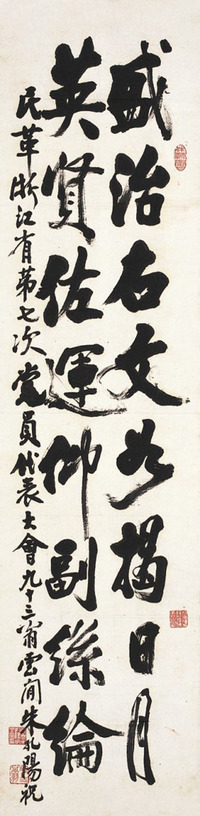 盛治右文如揭日月
英贤佐運仰副絲綸
民革浙江省第七次党員代表大會九十三翁雲間朱孔陽祝